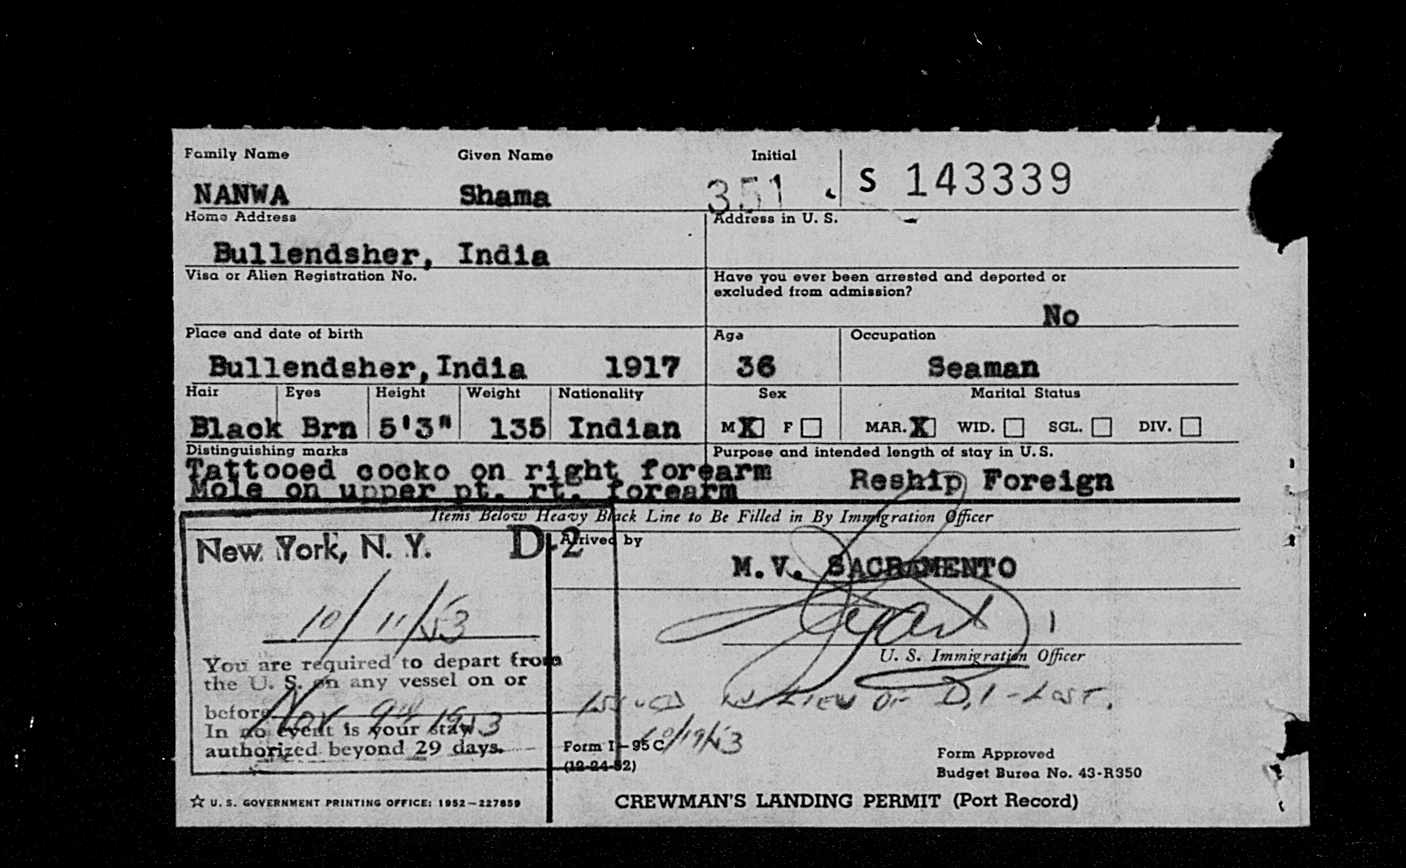 Family Name Given Name Initial
NANWA Shama 351 S 143339
Home Address Address in U. S.
Bullendsher, India
Visa or Alien Registration No. Have you ever been arrested and deported or
excluded from admission?
No
Place and date of birth Age Occupation
Bullendsher, India 1917 36 Seaman
Hair Eyes Height Weight Nationality Sex Marital Status
Black Brn 5'3" 135 Indian M X F MAR. X WID. SGL. DIV.
Distinguishing marks Purpose and intended length of stay in U. S.
Tattooed cocko on right forearm Reship Foreign
Mole on upper pt. rt. forearm
Items Below Heavy Black Line to Be Filled in By Immigration Officer
New York, N. Y. D-2 Arrived by
M.V. SACRAMENTO
10/11/53
U. S. Immigration Officer
You are required to depart from
the U. S. on any vessel on or
before Nov 9th 1953
In no event is your stay
authorized beyond 29 days.
ISSUED IN LIEU OF D.1 - LOST.
10/19/53
Form I-95 C
(12-24-52)
Form Approved
Budget Burea No. 43-R350
☆ U. S. GOVERNMENT PRINTING OFFICE: 1952-227859
CREWMAN'S LANDING PERMIT (Port Record)